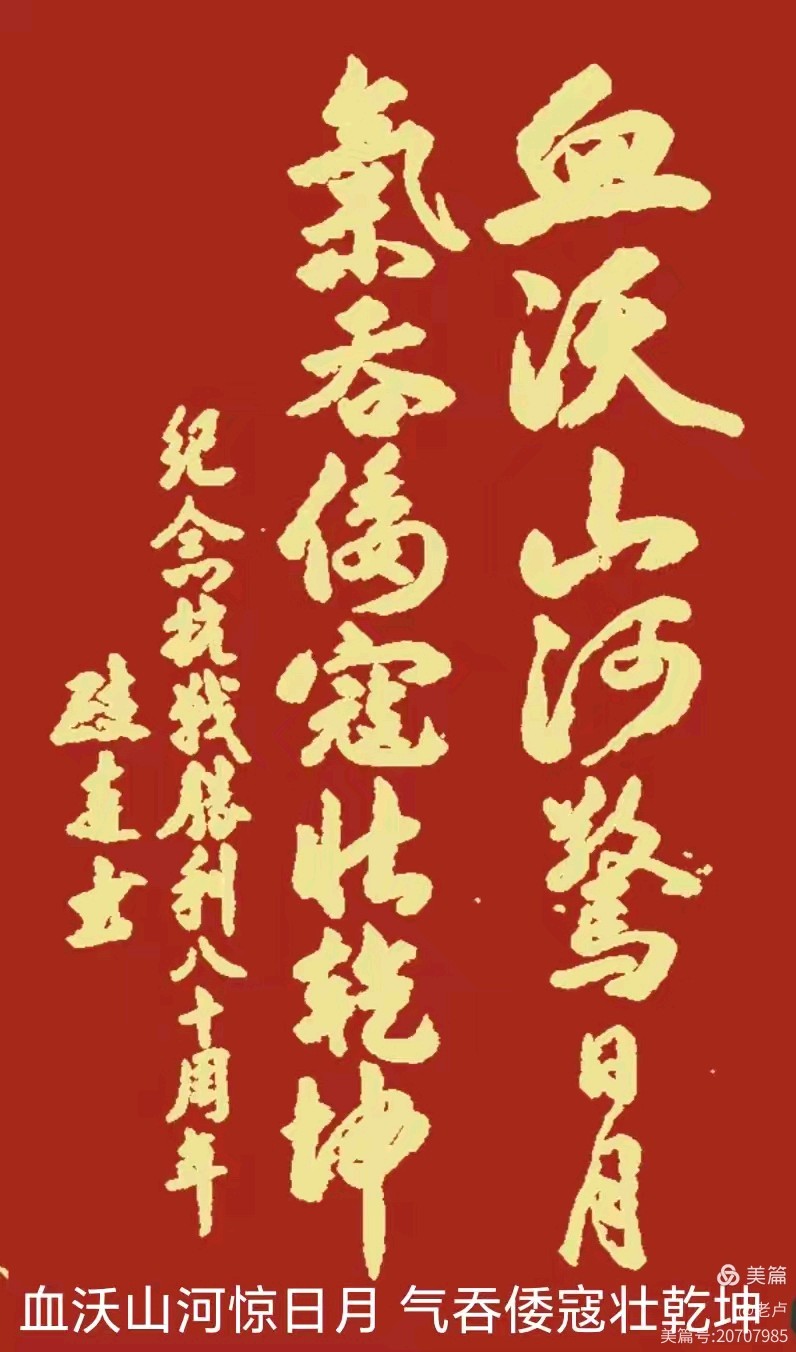 血沃山河驚日月
氣吞倭寇壯乾坤
纪念抗战胜利八十周年
建书
血沃山河惊日月 气吞倭寇壮乾坤
美篇
@老卢
美篇号:20707985